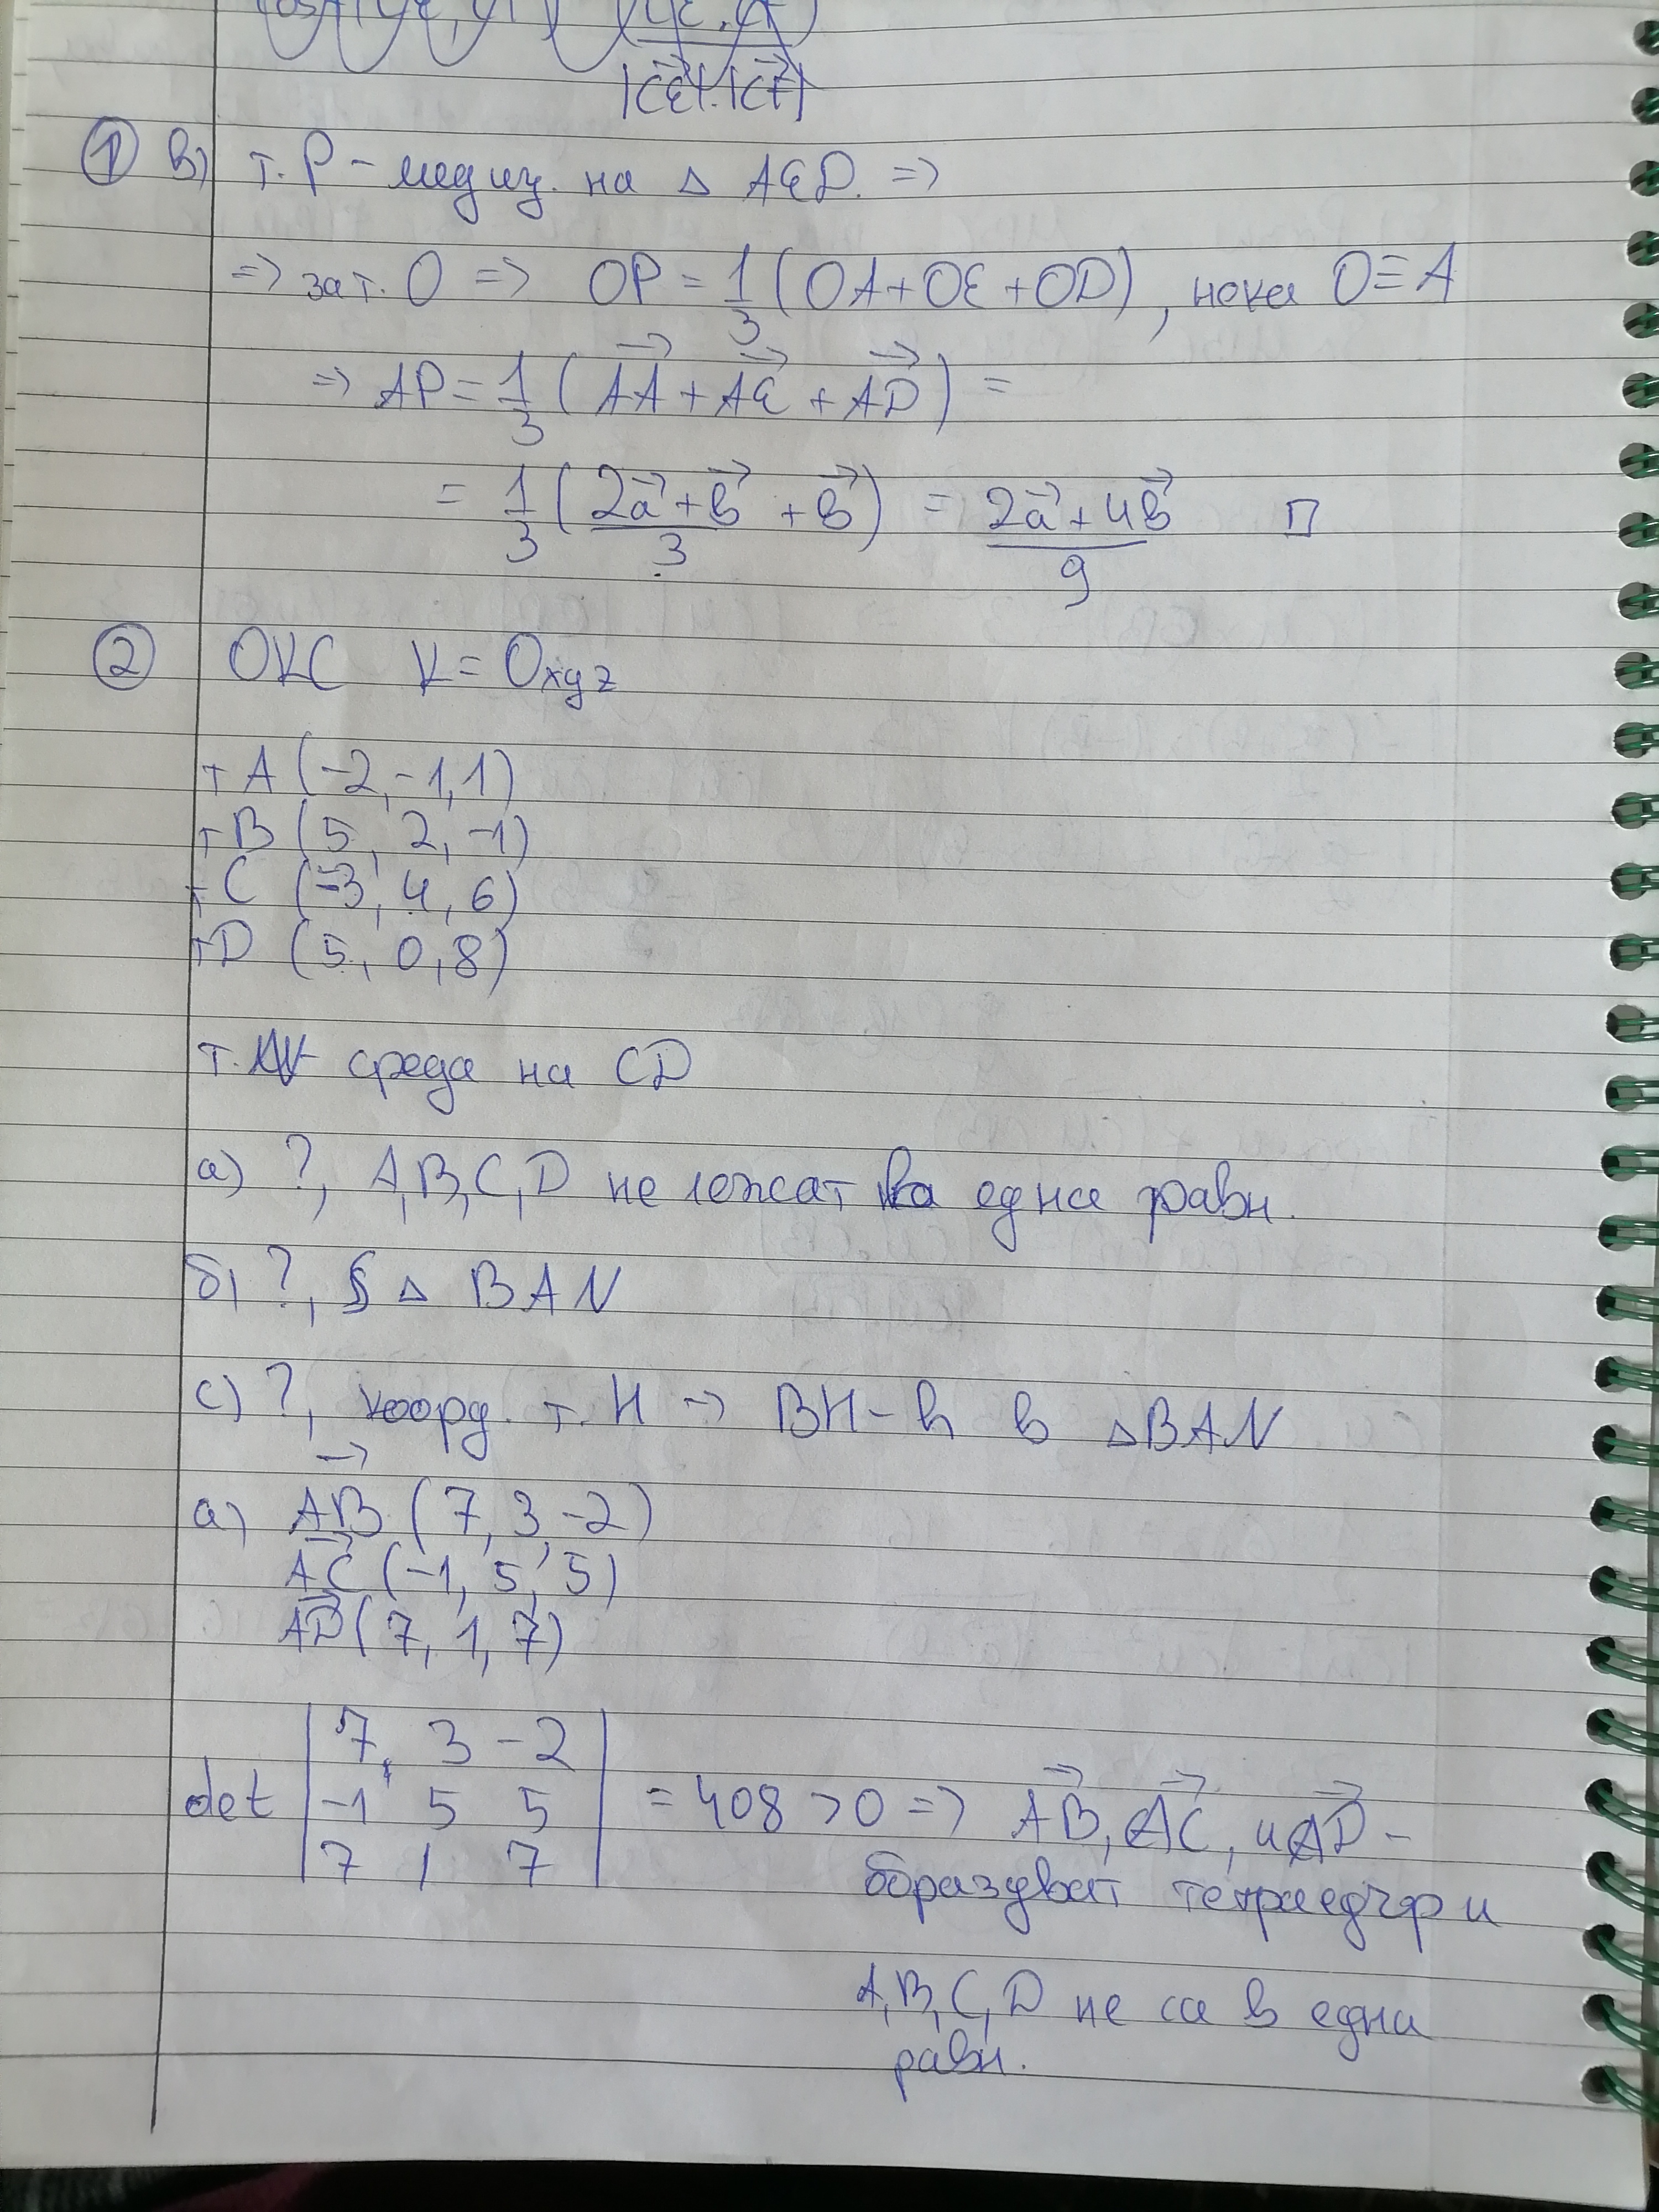 |CE|.|CF|
① в) т. P - медиц. на △ AED. =>
=> за т. O => OP = 1/3 (OA + OE + OD), нека O ≡ A
=> AP = 1/3 (AA + AE + AD) =
= 1/3 ((2a + b)/3 + b) = (2a + 4b)/9 □
② OKC K = Oxyz
т A (-2, -1, 1)
т B (5, 2, -1)
т C (-3, 4, 6)
т D (5, 0, 8)
т. N среда на CD
а) ?, A, B, C, D не лежат в една равн.
б) ?, S △ BAN
с) ?, коорд. т. H -> BH - h в △BAN
а) AB (7, 3, -2)
AC (-1, 5, 5)
AD (7, 1, 7)
7, 3 -2
det -1 5 5 = 408 > 0 => AB, AC, и AD -
7 1 7
образуват тетраедър и
A, B, C, D не са в една
равн.